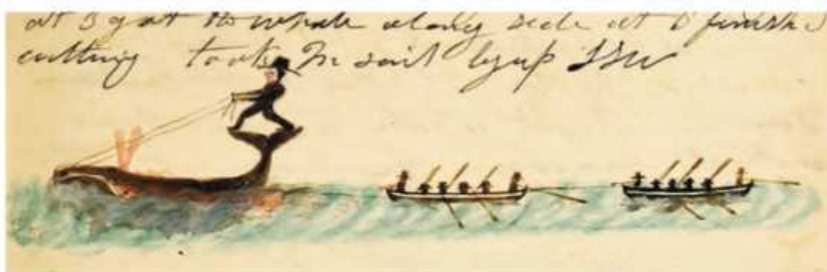 at 3 got the whale along side at 6 finished
cutting took in sail